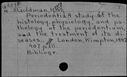 Goldman, H
Periodontia; a study of the
histology, physiology, and pa-
thology of the periodontium,
and the treatment of its di-
seases. London, Kimpton, 1942
Bibliogr.